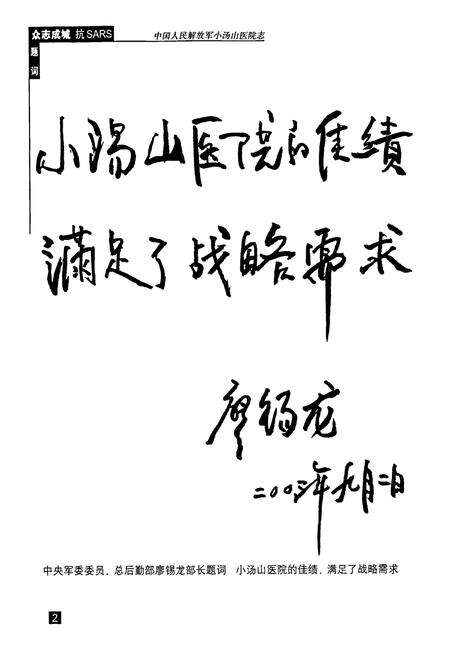 众志成城 抗SARS
中国人民解放军小汤山医院志
题词
小汤山医院的佳绩
满足了战略需求
廖锡龙
二00三年九月二日
中央军委委员、总后勤部廖锡龙部长题词 小汤山医院的佳绩，满足了战略需求
2